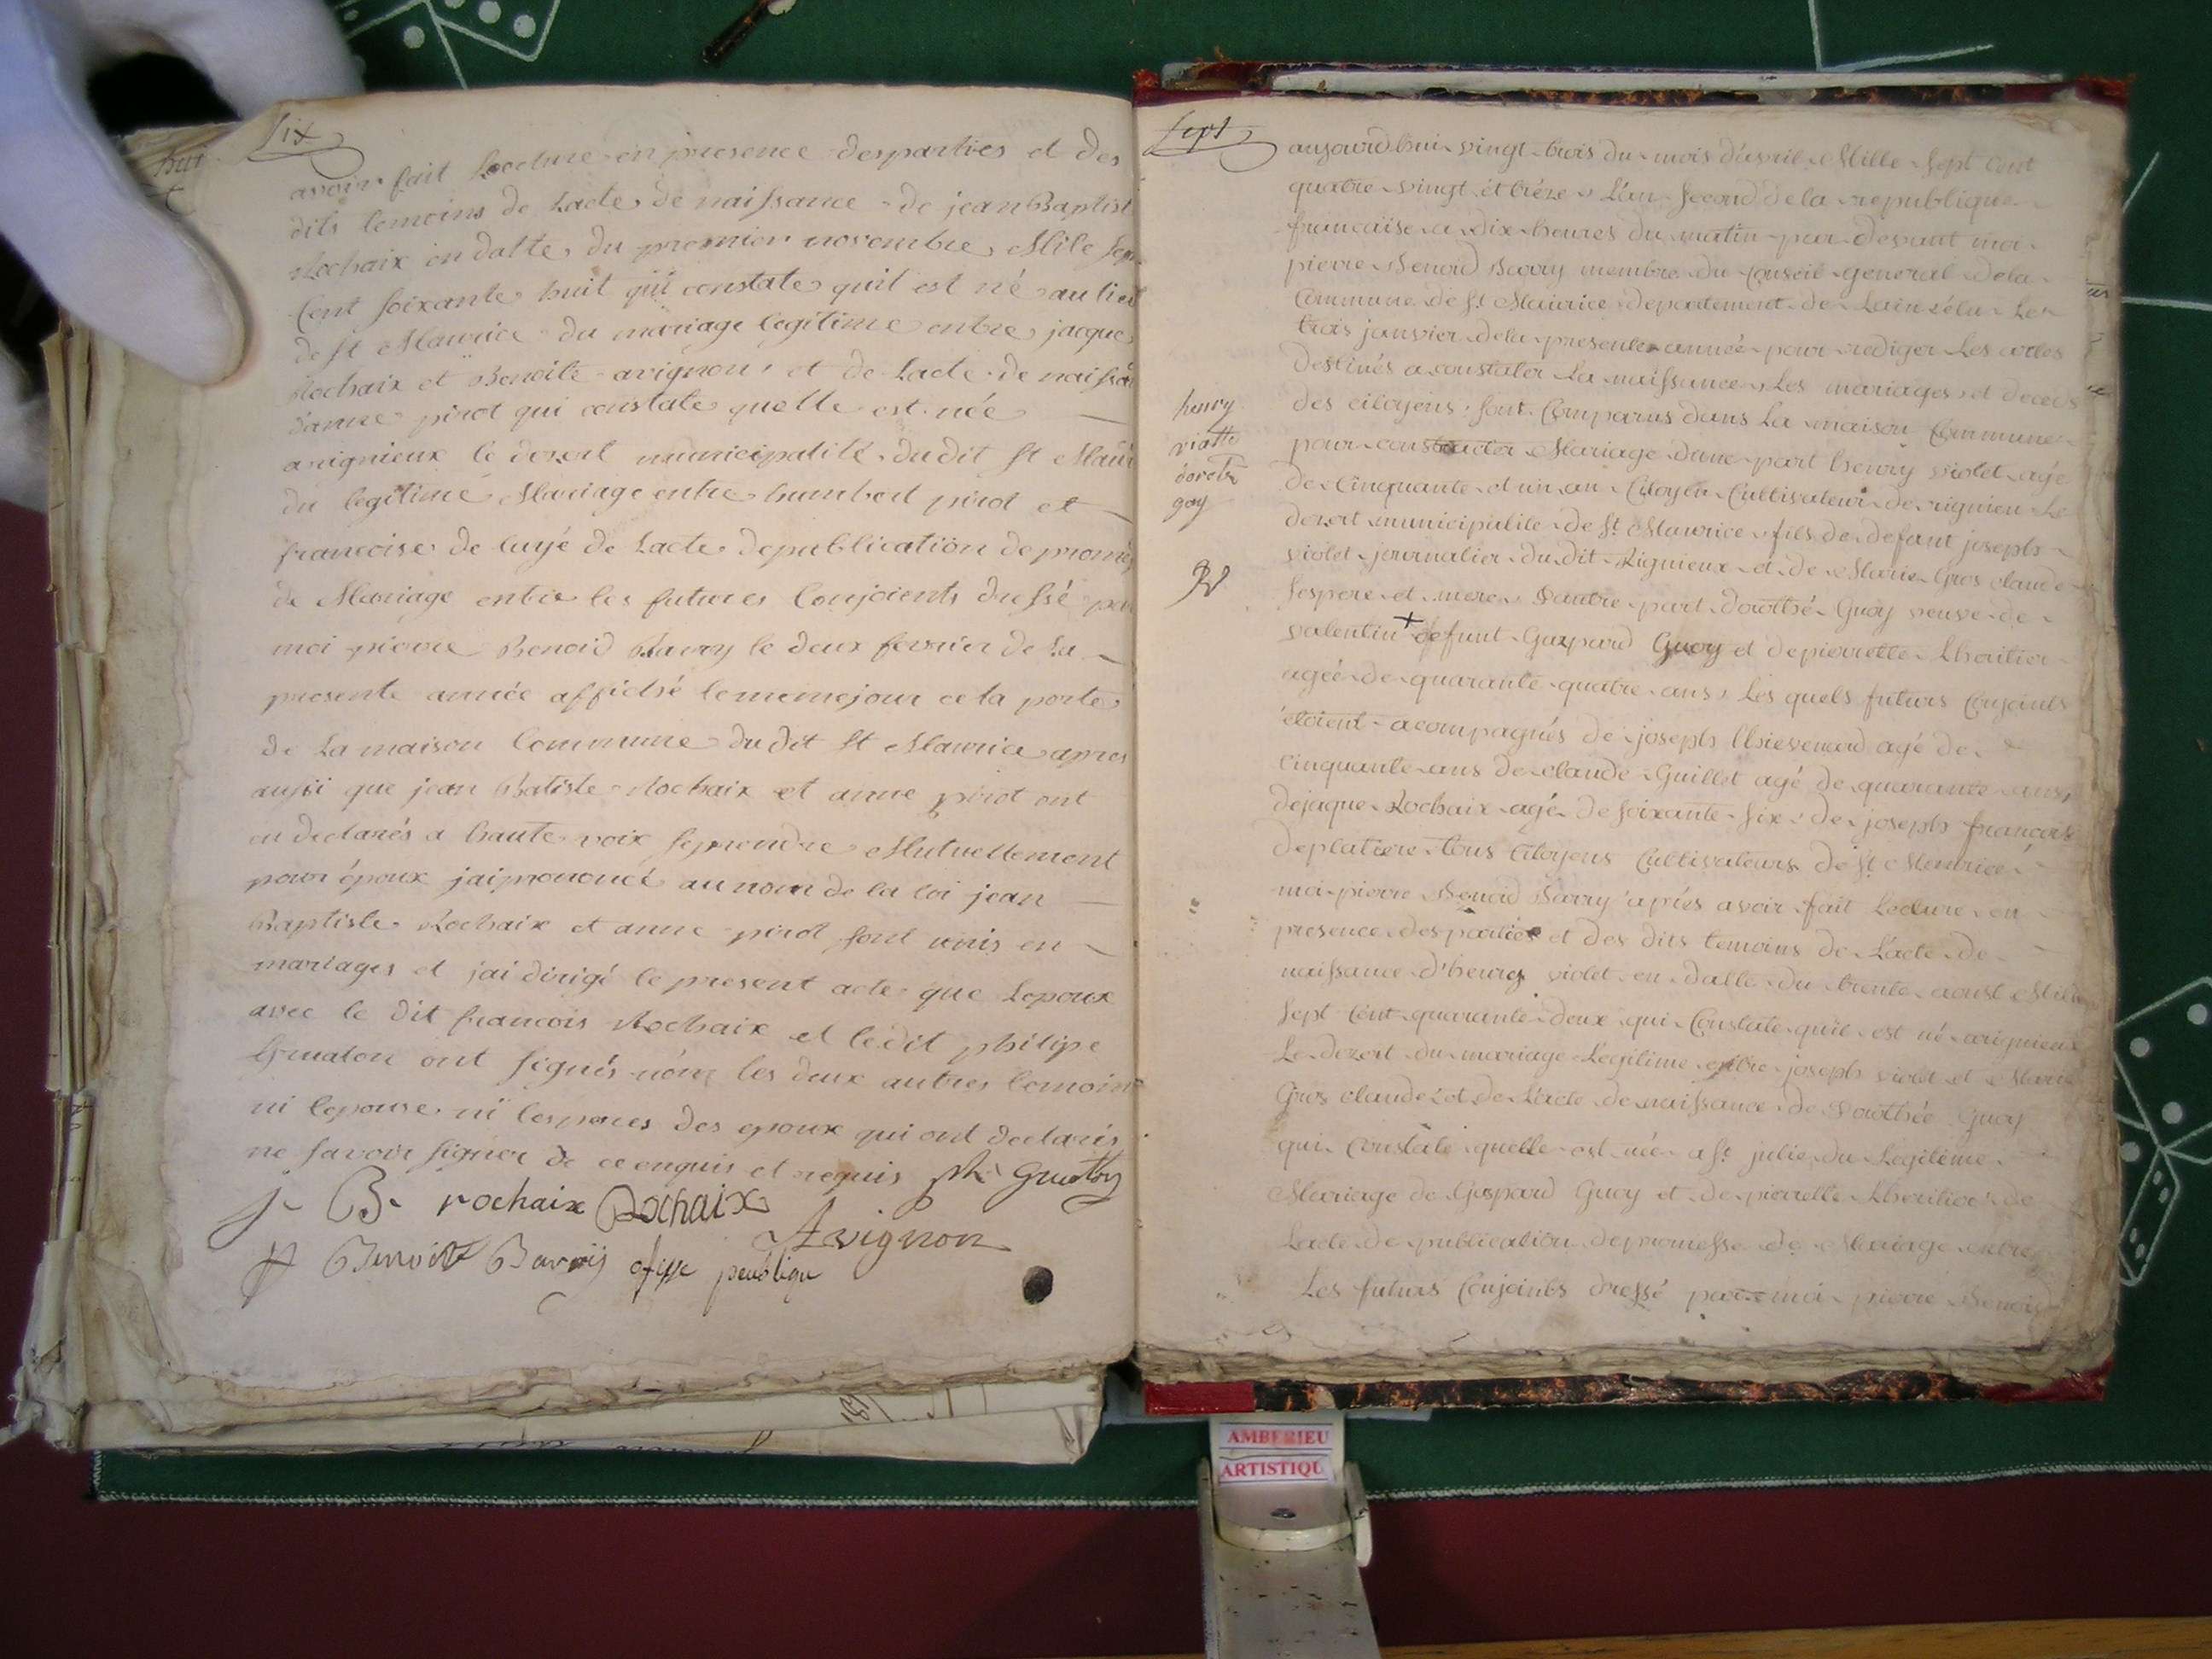 hui
six
avoir fait Lecture en presence desparties et des
dits temoins de Lacte de naissance de jean Baptist
Rochaix en datte du premier novembre Mile sep
Cent soixante huit qui constate quil est né au lieu
de st Maurice du mariage legitime entre jacque
Rochaix et Benoite avignon et de Lacte de naissan
danne pirot qui constate quelle est née
arignieux le dezert municipalité dudit st Maur
du legitime Mariage entre humbert pirot et
francoise de luyé de Lacte depublication de prome
de Mariage entre les futures Conjoients dressé par
moi pierre Benoid Barry le deux fevrier de La
presente année affiché lememejour ce la porte
de La maison Commune du dit st Maurice apres
aussi que jean Batiste Rochaix et anne pirot ont
eu declarés a haute voix seprendre Mutuellement
pour époux jaiprononcé aunom de la loi jean
Baptiste Rochaix et anne pirot sont unis en
mariages et jai dirigé le present acte que Lepoux
avec le dit francois Rochaix et ledit philipe
Gruaton ont signés non les deux autres temoin
ni lepouse ni lesperes des epoux qui ont declarés
ne savoir signer de ce enquis et requis ph Gruaton
j B rochaix Rochaix
Avignon
p Benoit Barry ofise peublique
sept
aujourdhui vingt trois du mois d'avril Mille sept Cent
quatre vingt et trèze L'an second de la republique
francaise a dix heures du matin par devant moi
pierre Benoid Barry membre du Conseil general dela
Commune de st Maurice departement de Lain élu Le
trois janvier dela presente année pour rediger Les actes
destinés a constater La naissance Les mariages et decés
des citoyens sont Comparus dans La maison Commune
pour contracter Mariage dune part henry violet agé
de Cinquante et un an Citoyen Cultivateur de rignieu Le
dezert municipalite de St Maurice fils de defunt joseph
violet journalier du dit Rignieux et de Marie Gros claude
sespere et mere Dautre part dorothé Guoy veuve de
valentin + defunt Gaspard Guoy et depierrette Lheritier
agée de quarante quatre ans Les quels futurs Conjoints
étoient acompagnés de joseph thievenard agé de
cinquante ans de claude Guillet agé de quarante ans
dejaque Rochaix agé de soixante six de joseph francois
deplatiere tous Citoyens Cultivateurs de st Maurice
moi pierre Benoid Barry apriés avoir fait Lecture en
presence desparties et des dits temoins de L'acte de
naissance d'henry violet en datte du trente aoust Mile
sept Cent quarante deux qui Constate quil est né arignieux
Le dezert du mariage Légitime entre joseph violet et Marie
Gros claude et de L'acte de naissance de Dorothée Guoy
qui Constate quelle est née a St julie du Legitime
Mariage de Gaspard Guoy et de pierrette Lheritier de
Lacte de publication depromesse de Mariage entre
Les futurs Conjoints dressé par moi pierre Benoid
henry
viatte
dorothe
goy
AMBERIEU
ARTISTIQU